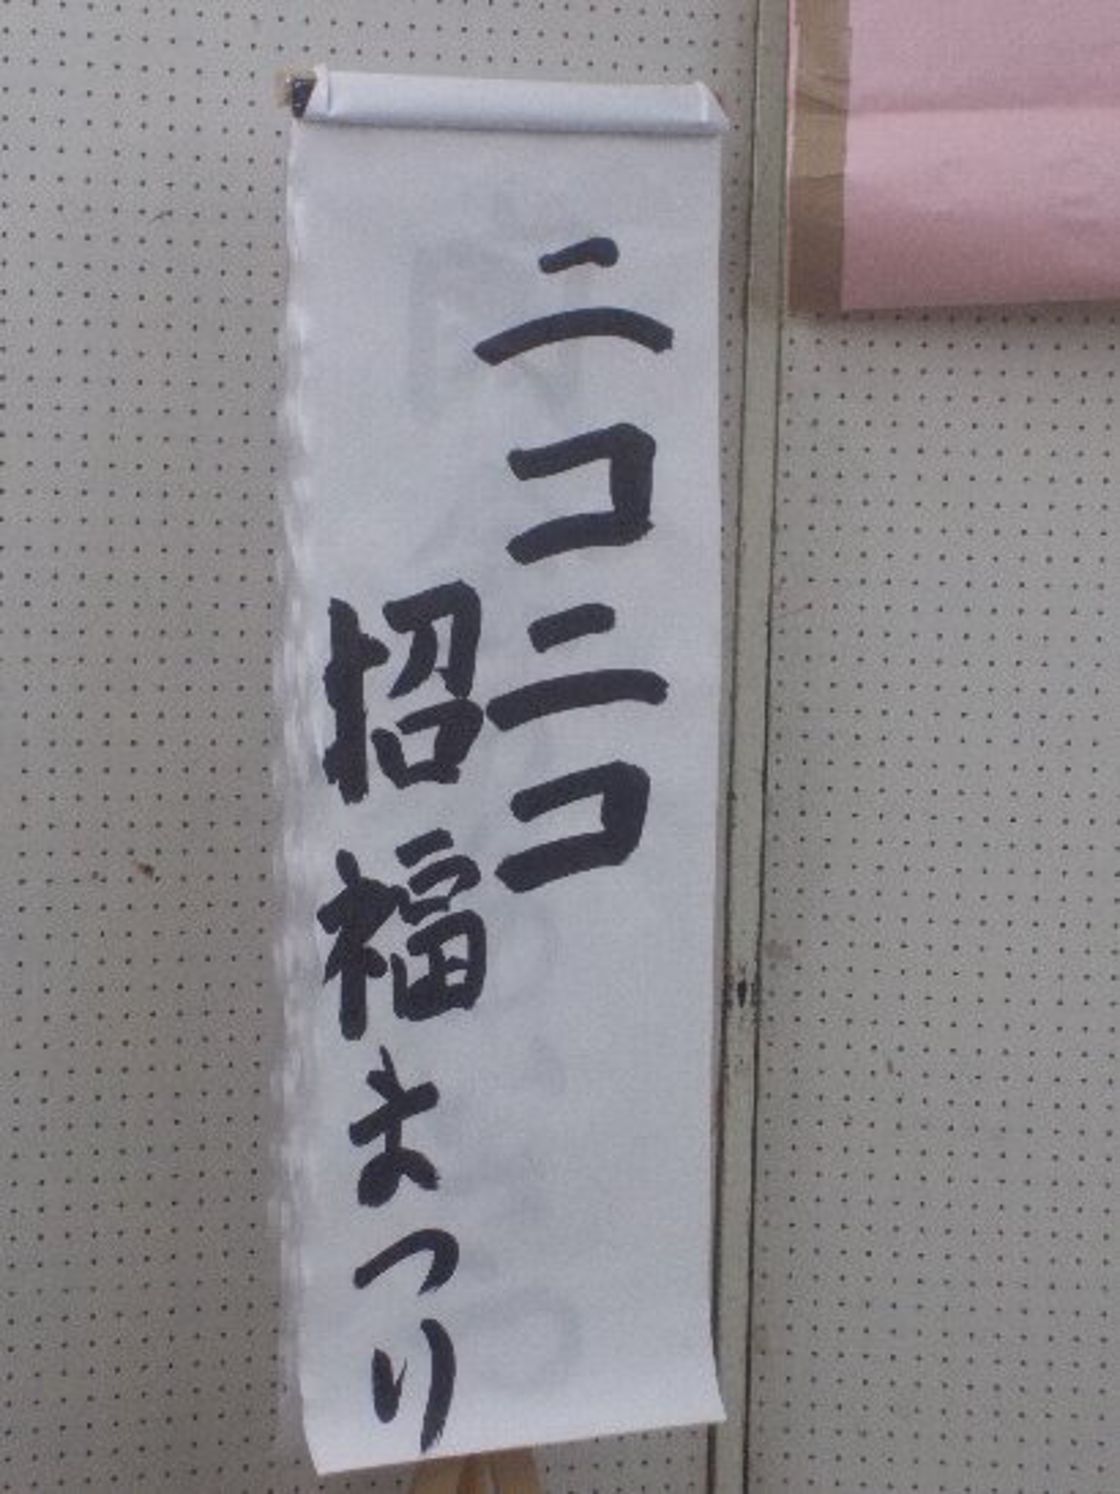 ニコニコ
招福まつり